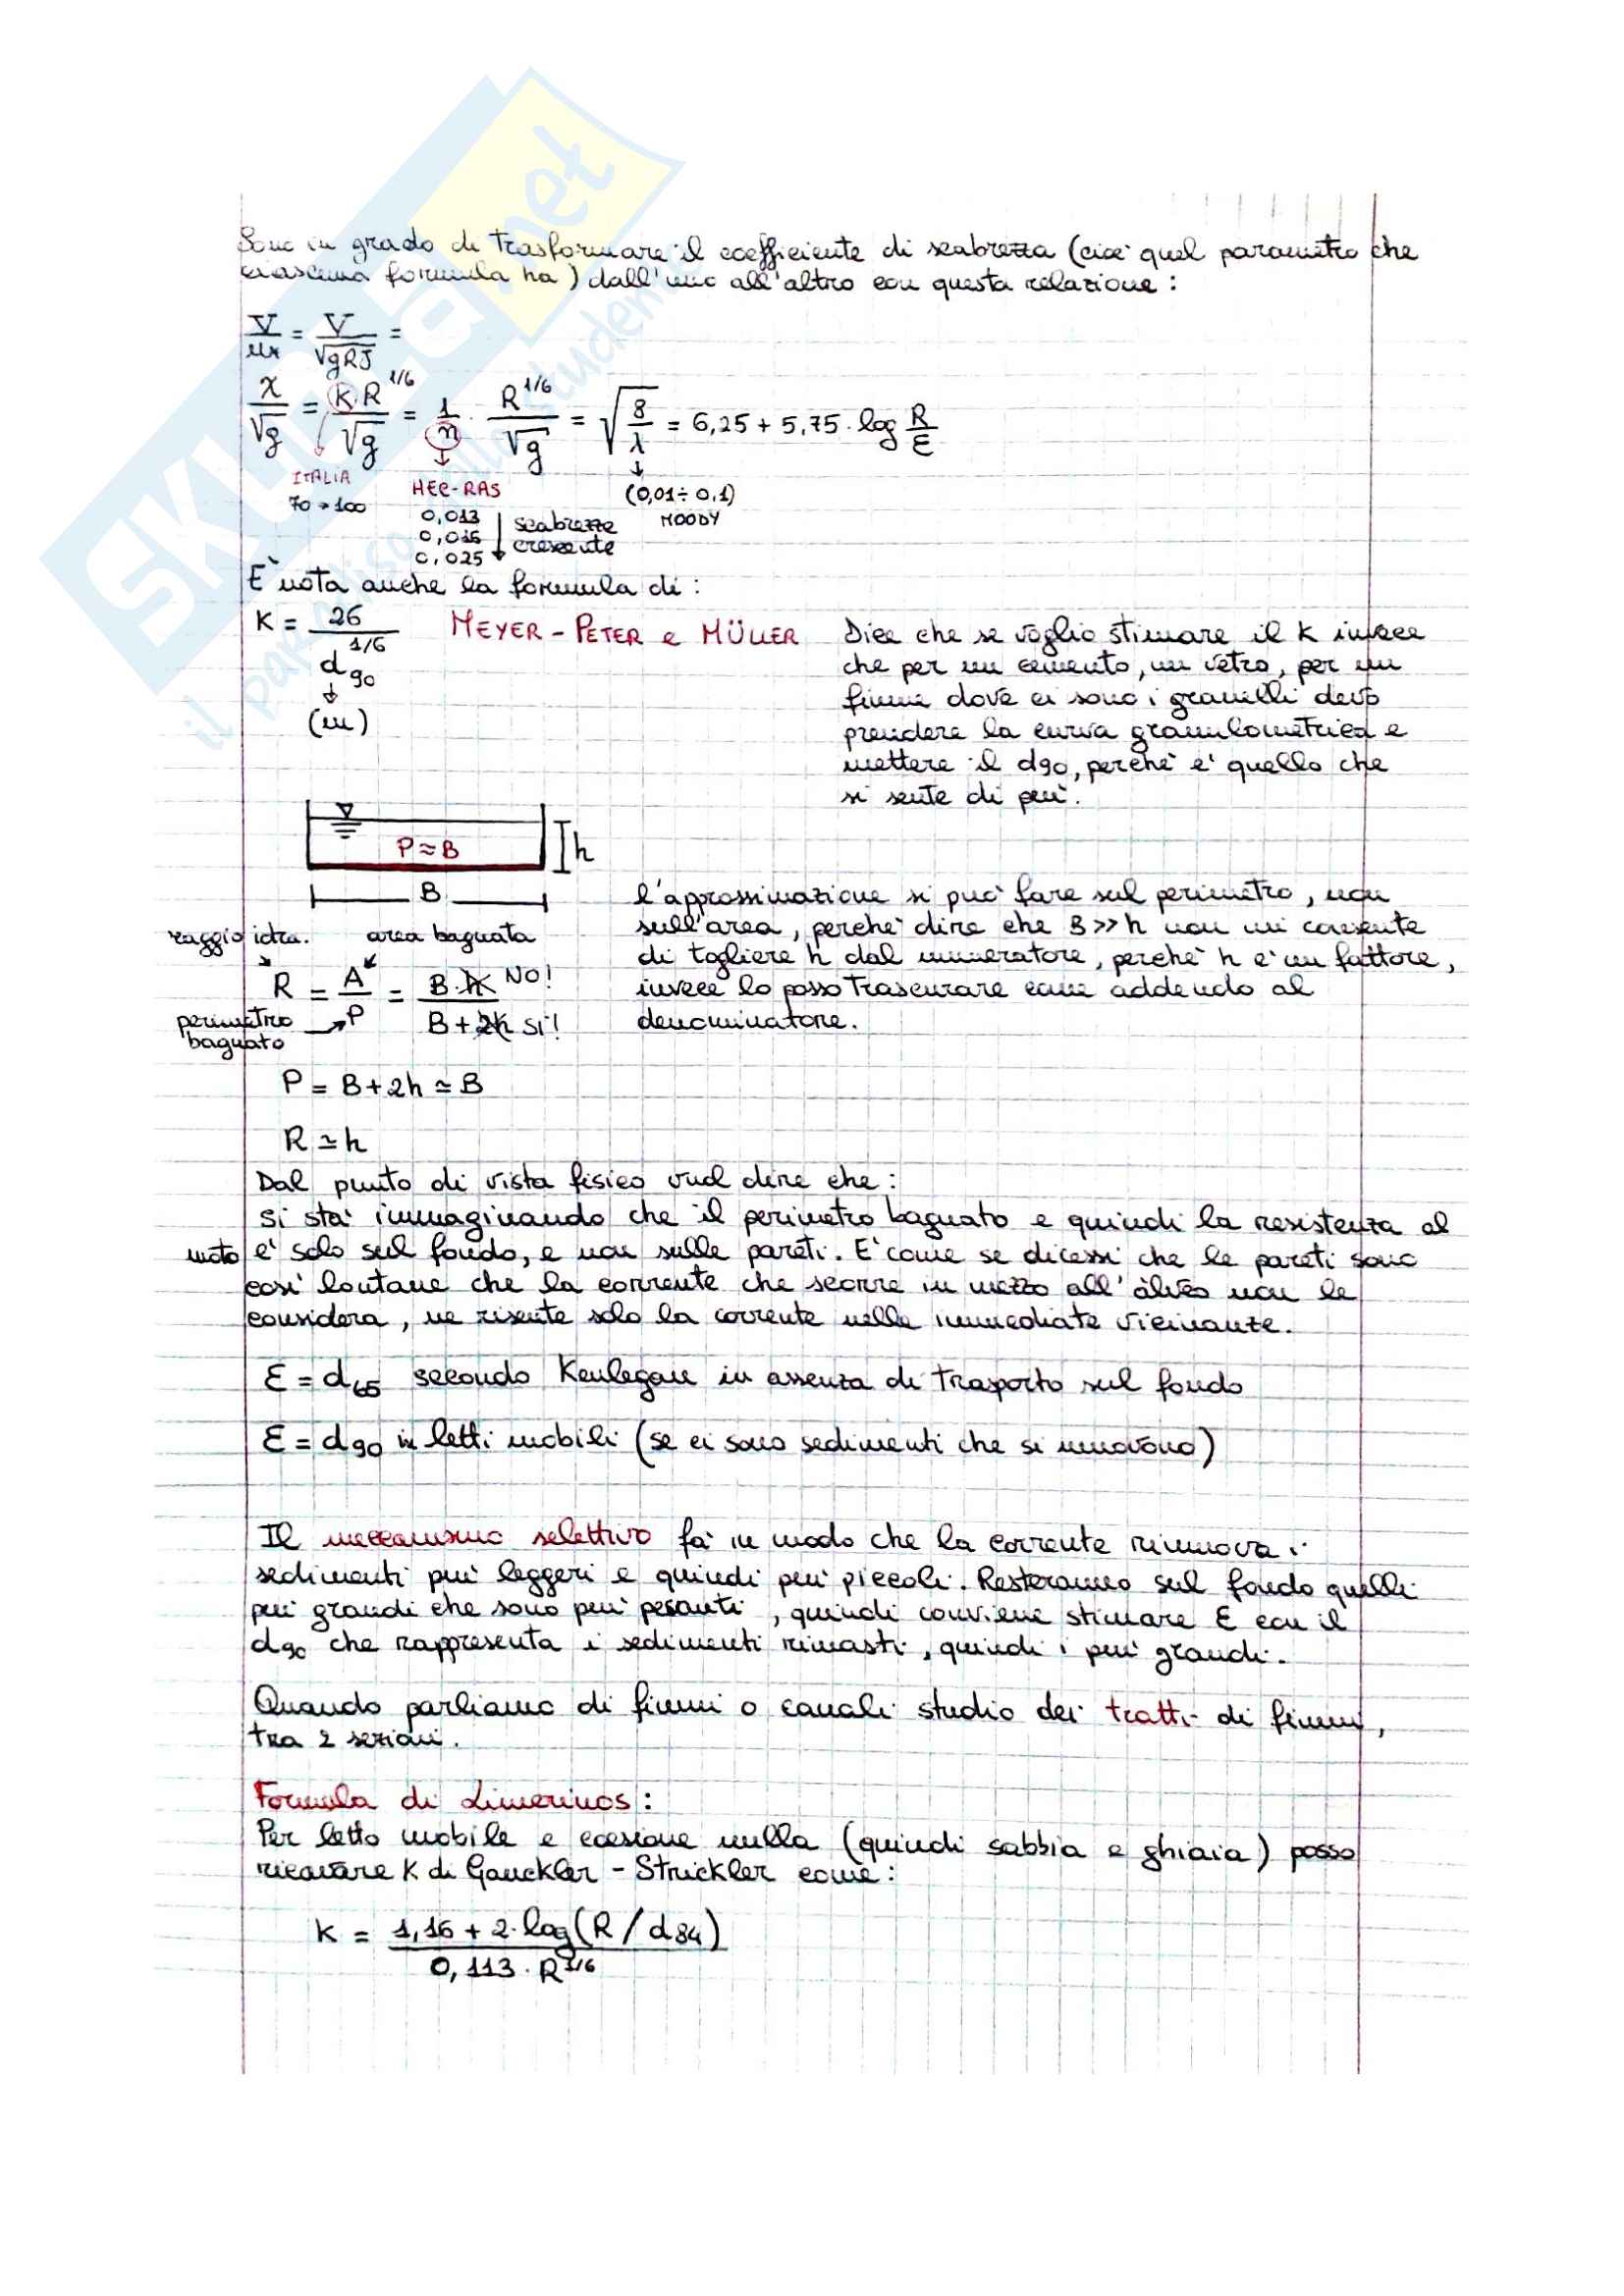 SKUOLA.net
il paradiso dello studente
Sono in grado di trasformare il coefficiente di scabrezza (cioè quel parametro che
ciascuna formula ha) dall'uno all'altro con questa relazione:
V/u* = V/√gRJ =
χ/√g = k·R^1/6/√g = 1/n · R^1/6/√g = √8/λ = 6,25 + 5,75·log R/ε
ITALIA
70 → 100
HEC-RAS
0,013
0,016
0,025
scabrezze
crescente
(0,01÷0,1)
MOODY
È nota anche la formula di:
K = 26/d90^1/6
(m)
MEYER-PETER e MÜLLER
Dice che se voglio stimare il K invece
che per un cemento, un vetro, per un
fiume dove ci sono i granelli devo
prendere la curva granulometrica e
mettere il d90, perchè è quello che
si sente di più.
P≃B
h
B
raggio idra.
area bagnata
R = A/P = B·h/B+2h
NO!
SI!
perimetro
bagnato
l'approssimazione si può fare sul perimetro, non
sull'area, perchè dire che B>>h non mi consente
di togliere h dal numeratore, perchè h è un fattore,
invece lo posso trascurare come addendo al
denominatore.
P = B+2h ≃ B
R ≃ h
Dal punto di vista fisico vuol dire che:
si sta' immaginando che il perimetro bagnato e quindi la resistenza al
moto è solo sul fondo, e non sulle pareti. E' come se dicessi che le pareti sono
così lontane che la corrente che scorre in mezzo all'àlveo non le
considera, ne risente solo la corrente nelle immediate vicinanze.
ε = d65 secondo Keulegan in assenza di trasporto sul fondo
ε = d90 in letti mobili (se ci sono sedimenti che si muovono)
Il meccanismo selettivo fa in modo che la corrente rimuova i
sedimenti più leggeri e quindi più piccoli. Resteranno sul fondo quelli
più grandi che sono più pesanti, quindi conviene stimare ε con il
d90 che rappresenta i sedimenti rimasti, quindi i più grandi.
Quando parliamo di fiumi o canali studio dei tratti di fiumi,
tra 2 sezioni.
Formula di Limerinos:
Per letto mobile e coesione nulla (quindi sabbia e ghiaia) posso
ricavare K di Gauckler-Strickler come:
K = 1,16 + 2·log(R/d84)/0,113·R^1/6